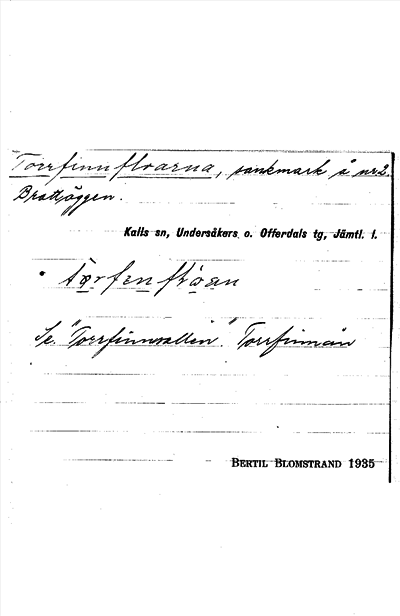 Torrfinnfloarna, sankmark å nr 2
Brattjöggen.
Kalls sn, Undersåkers o. Offerdals tg, Jämtl. l.
Se "Torrfinnvallen". Torrfinnån
BERTIL BLOMSTRAND 1935